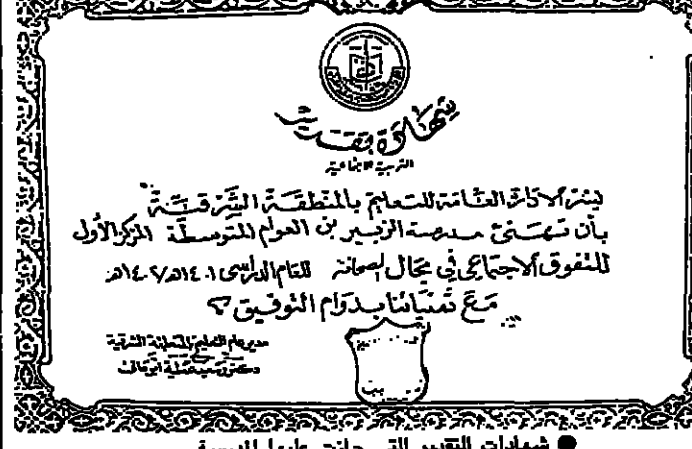 شهادة تقدير
التربية الاجتماعية
يسر الادارة العامة للتعليم بالمنطقة الشرقية
بأن تهنئ مدرسة الزبير بن العوام المتوسطة المركز الأول
للتفوق الاجتماعي في مجال الصحافة للعام الدراسي ١٤٠١هـ/١٤٠٢هـ
مع تمنياتنا بدوام التوفيق
مدير عام التعليم بالمنطقة الشرقية
دكتور سعيد عطية أبو عالي
● شهادات التقدير التي حازت عليها المدرسة